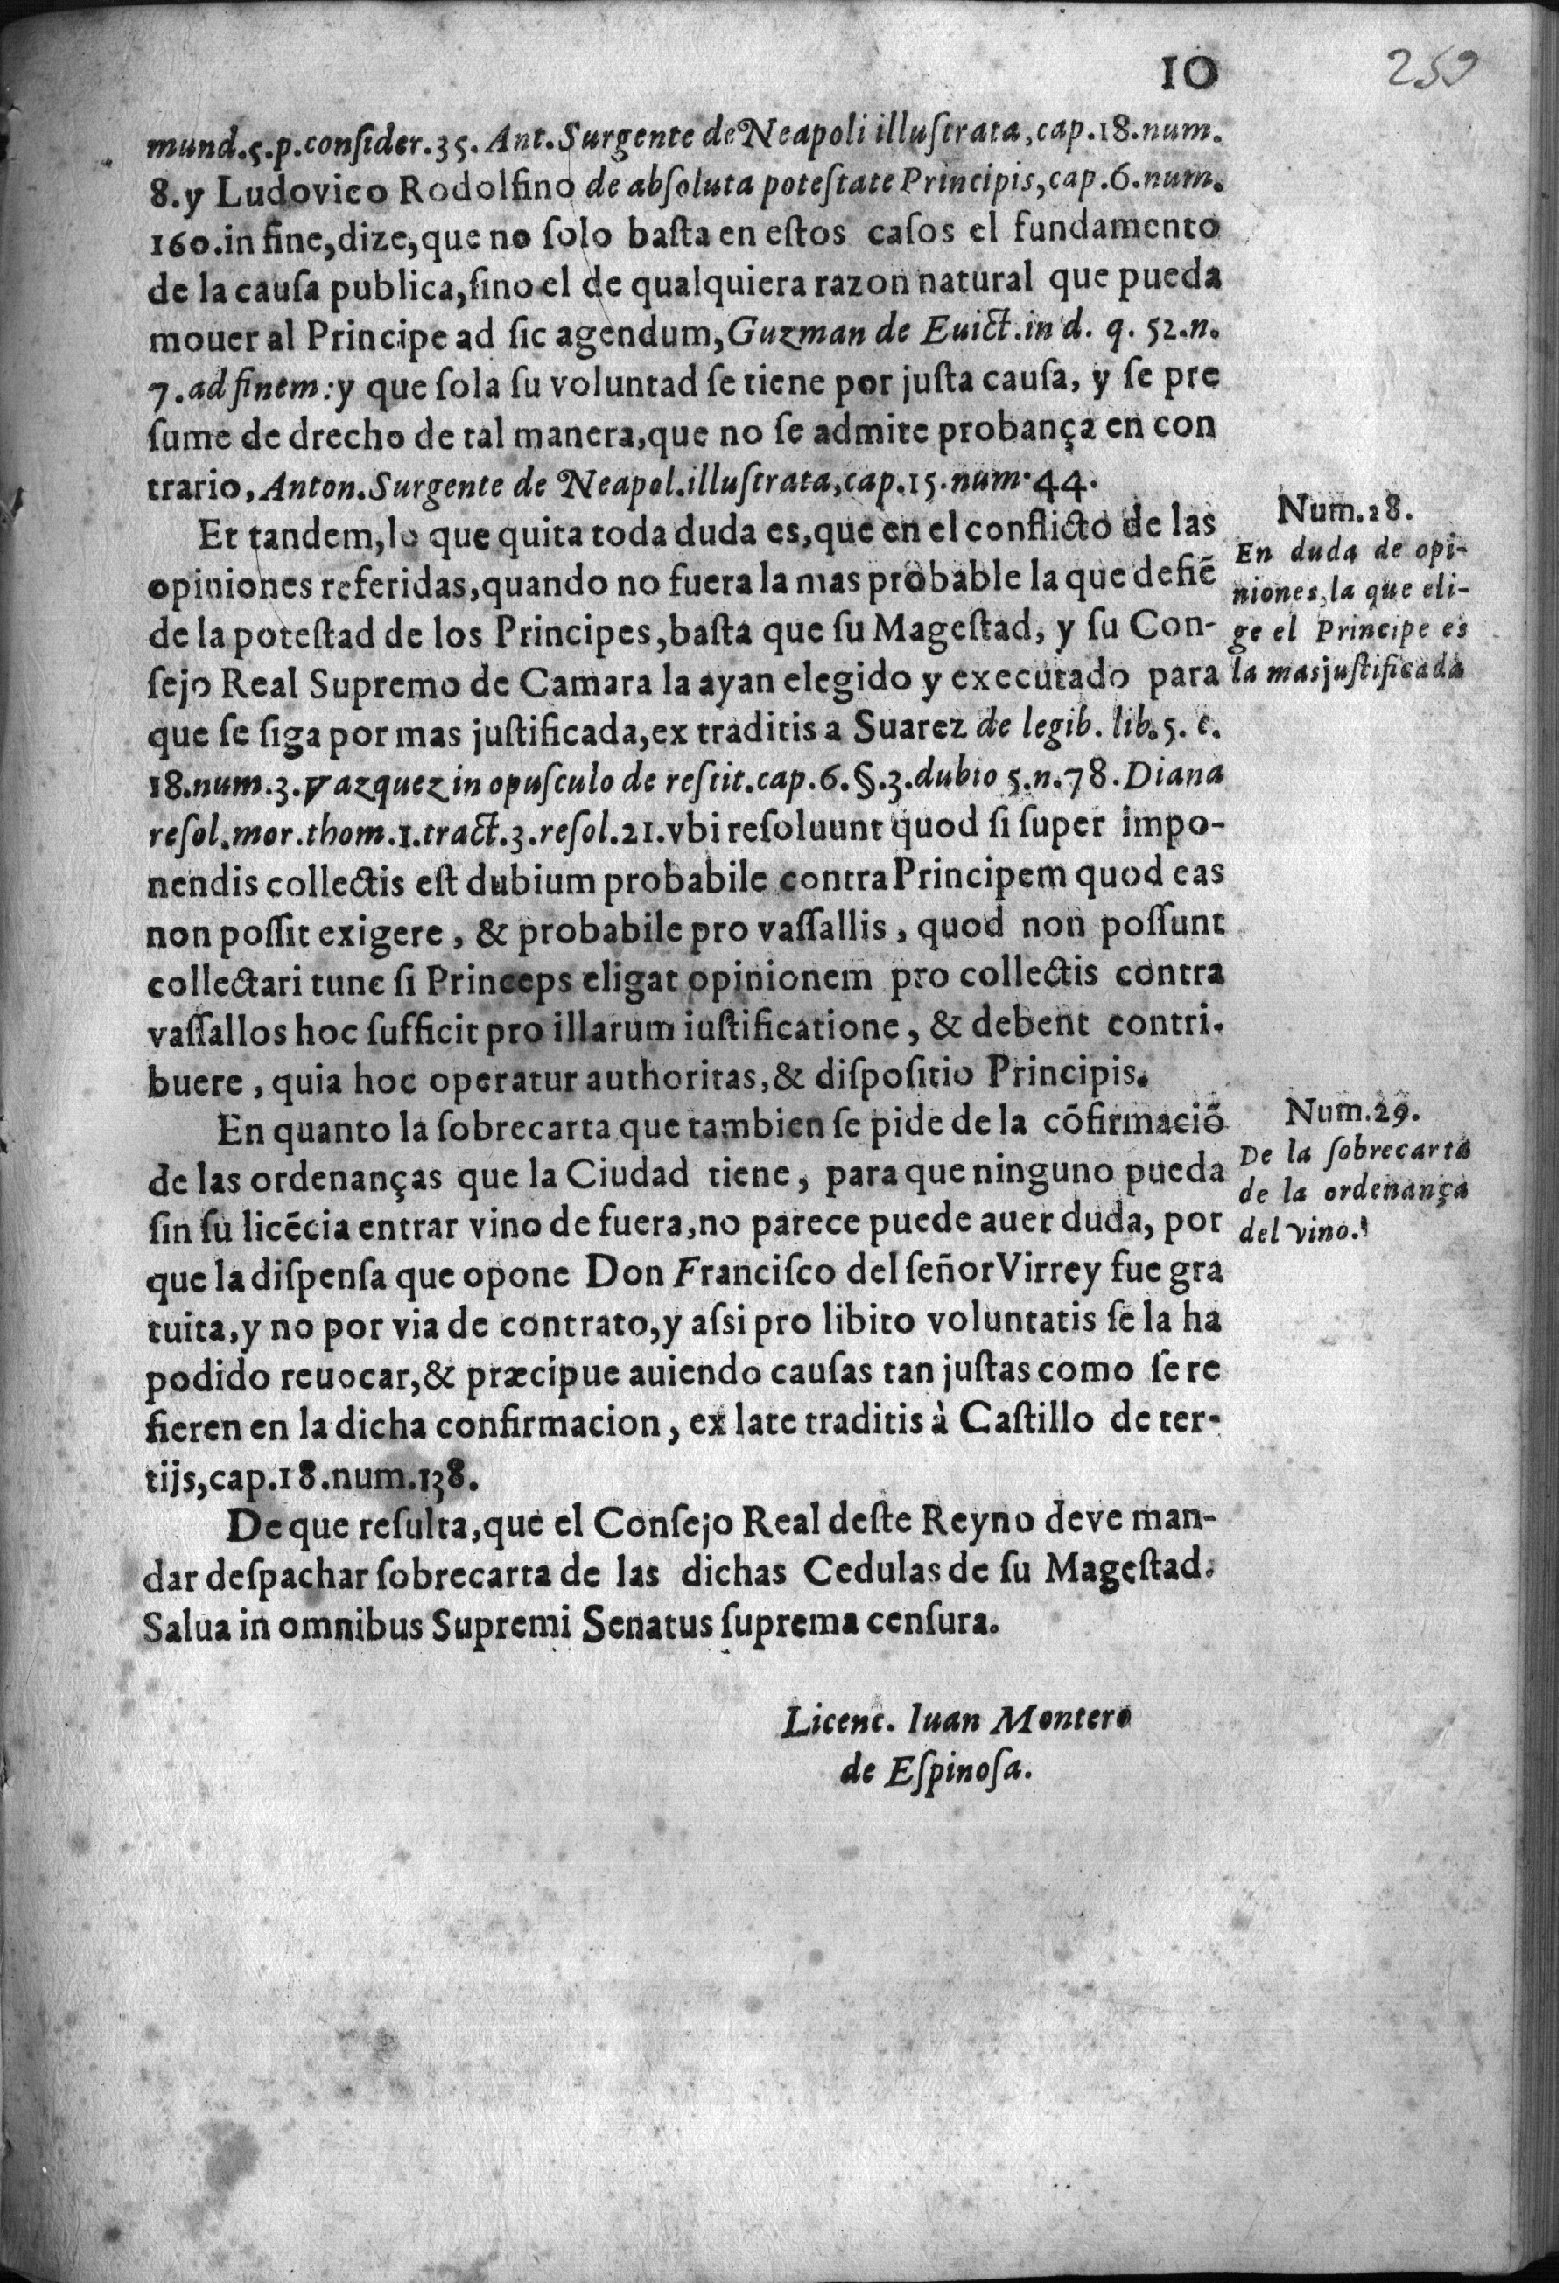 10
259
mund.5.p.conſider.35. Ant.Surgente de Neapoli illuſtrata, cap.18.num.
8.y Ludovico Rodolfino de abſoluta poteſtate Principis, cap.6.num.
160.in fine, dize, que no ſolo baſta en eſtos caſos el fundamento
de la cauſa publica, ſino el de qualquiera razon natural que pueda
mouer al Principe ad ſic agendum, Guzman de Euict.in d. q. 52.n.
7.ad finem: y que ſola ſu voluntad ſe tiene por juſta cauſa, y ſe pre
ſume de drecho de tal manera, que no ſe admite probança en con
trario, Anton.Surgente de Neapol.illuſtrata, cap.15.num.44.
Et tandem, lo que quita toda duda es, que en el conflicto de las
opiniones referidas, quando no fuera la mas probable la que defiẽ
de la poteſtad de los Principes, baſta que ſu Mageſtad, y ſu Con-
ſejo Real Supremo de Camara la ayan elegido y executado para
que ſe ſiga por mas juſtificada, ex traditis a Suarez de legib. lib.5. c.
18.num.3.Vazquez in opuſculo de reſtit.cap.6.§.3.dubio 5.n.78.Diana
reſol.mor.thom.1.tract.3.reſol.21.vbi reſoluunt quod ſi ſuper impo-
nendis collectis eſt dubium probabile contra Principem quod eas
non poſſit exigere, & probabile pro vaſſallis, quod non poſſunt
collectari tunc ſi Princeps eligat opinionem pro collectis contra
vaſſallos hoc ſufficit pro illarum iuſtificatione, & debent contri-
buere, quia hoc operatur authoritas, & diſpoſitio Principis.
Num.28.
En duda de opi-
niones, la que eli-
ge el Principe es
la mas juſtificada
En quanto la ſobrecarta que tambien ſe pide de la cõfirmaciõ
de las ordenanças que la Ciudad tiene, para que ninguno pueda
ſin ſu licẽcia entrar vino de fuera, no parece puede auer duda, por
que la diſpenſa que opone Don Franciſco del ſeñor Virrey fue gra
tuita, y no por via de contrato, y aſsi pro libito voluntatis ſe la ha
podido reuocar, & præcipue auiendo cauſas tan juſtas como ſe re
fieren en la dicha confirmacion, ex late traditis à Caſtillo de ter-
tijs, cap.18.num.138.
Num.29.
De la ſobrecarta
de la ordenança
del vino.
De que reſulta, que el Conſejo Real deſte Reyno deve man-
dar deſpachar ſobrecarta de las dichas Cedulas de ſu Mageſtad.
Salua in omnibus Supremi Senatus ſuprema cenſura.
Licenc. Iuan Montero
de Eſpinoſa.